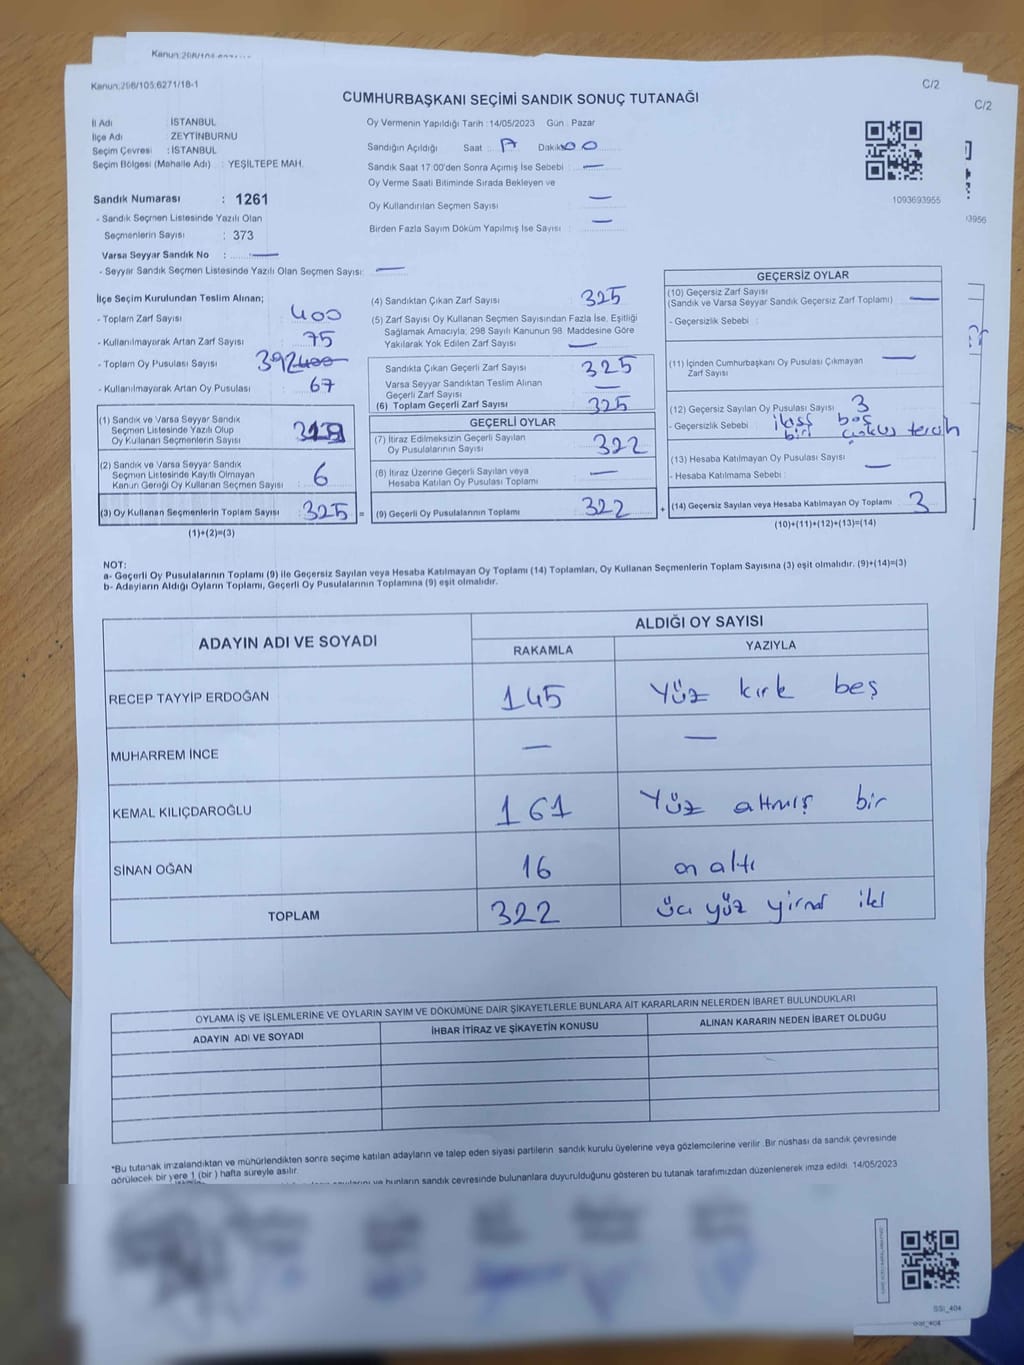 Kanun:298/105;6271/18-1
C/2
C/2
CUMHURBAŞKANI SEÇİMİ SANDIK SONUÇ TUTANAĞI
İl Adı : İSTANBUL
İlçe Adı : ZEYTİNBURNU
Seçim Çevresi : İSTANBUL
Seçim Bölgesi (Mahalle Adı) : YEŞİLTEPE MAH.
Oy Vermenin Yapıldığı Tarih :14/05/2023 Gün : Pazar
Sandığın Açıldığı Saat Dakika 00
Sandık Saat 17:00'den Sonra Açımış İse Sebebi : —
Oy Verme Saati Bitiminde Sırada Bekleyen ve
Oy Kullandırılan Seçmen Sayısı —
Birden Fazla Sayım Döküm Yapılmış İse Sayısı : —
1093693955
Sandık Numarası : 1261
- Sandık Seçmen Listesinde Yazılı Olan
Seçmenlerin Sayısı : 373
Varsa Seyyar Sandık No : —
- Seyyar Sandık Seçmen Listesinde Yazılı Olan Seçmen Sayısı: —
İlçe Seçim Kurulundan Teslim Alınan;
- Toplam Zarf Sayısı : 400
- Kullanılmayarak Artan Zarf Sayısı : 75
- Toplam Oy Pusulası Sayısı 392 400
- Kullanılmayarak Artan Oy Pusulası : 67
(1) Sandık ve Varsa Seyyar Sandık
Seçmen Listesinde Yazılı Olup
Oy Kullanan Seçmenlerin Sayısı
(2) Sandık ve Varsa Seyyar Sandık
Seçmen Listesinde Kayıtlı Olmayan
Kanun Gereği Oy Kullanan Seçmen Sayısı : 6
(3) Oy Kullanan Seçmenlerin Toplam Sayısı : 325 =
(1)+(2)=(3)
(4) Sandıktan Çıkan Zarf Sayısı : 325
(5) Zarf Sayısı Oy Kullanan Seçmen Sayısından Fazla İse, Eşitliği
Sağlamak Amacıyla, 298 Sayılı Kanunun 98. Maddesine Göre
Yakılarak Yok Edilen Zarf Sayısı : —
Sandıkta Çıkan Geçerli Zarf Sayısı : 325
Varsa Seyyar Sandıktan Teslim Alınan
Geçerli Zarf Sayısı : —
(6) Toplam Geçerli Zarf Sayısı : 325
GEÇERLİ OYLAR
(7) İtiraz Edilmeksizin Geçerli Sayılan
Oy Pusulalarının Sayısı : 322
(8) İtiraz Üzerine Geçerli Sayılan veya
Hesaba Katılan Oy Pusulası Toplamı : —
(9) Geçerli Oy Pusulalarının Toplamı : 322 +
GEÇERSİZ OYLAR
(10) Geçersiz Zarf Sayısı
(Sandık ve Varsa Seyyar Sandık Geçersiz Zarf Toplamı) : —
- Geçersizlik Sebebi :
(11) İçinden Cumhurbaşkanı Oy Pusulası Çıkmayan
Zarf Sayısı : —
(12) Geçersiz Sayılan Oy Pusulası Sayısı : 3
- Geçersizlik Sebebi : ikisi boş
biri tercih
(13) Hesaba Katılmayan Oy Pusulası Sayısı : —
- Hesaba Katılmama Sebebi :
(14) Geçersiz Sayılan veya Hesaba Katılmayan Oy Toplamı : 3
(10)+(11)+(12)+(13)=(14)
NOT:
a- Geçerli Oy Pusulalarının Toplamı (9) ile Geçersiz Sayılan veya Hesaba Katılmayan Oy Toplamı (14) Toplamları, Oy Kullanan Seçmenlerin Toplam Sayısına (3) eşit olmalıdır. (9)+(14)=(3)
b- Adayların Aldığı Oyların Toplamı, Geçerli Oy Pusulalarının Toplamına (9) eşit olmalıdır.
ADAYIN ADI VE SOYADI
ALDIĞI OY SAYISI
RAKAMLA YAZIYLA
RECEP TAYYİP ERDOĞAN 145 Yüz kırk beş
MUHARREM İNCE — —
KEMAL KILIÇDAROĞLU 161 Yüz altmış bir
SİNAN OĞAN 16 on altı
TOPLAM 322 üç yüz yirmi iki
OYLAMA İŞ VE İŞLEMLERİNE VE OYLARIN SAYIM VE DÖKÜMÜNE DAİR ŞİKAYETLERLE BUNLARA AİT KARARLARIN NELERDEN İBARET BULUNDUKLARI
ADAYIN ADI VE SOYADI İHBAR İTİRAZ VE ŞİKAYETİN KONUSU ALINAN KARARIN NEDEN İBARET OLDUĞU
*Bu tutanak imzalandıktan ve mühürlendikten sonra seçime katılan adayların ve talep eden siyasi partilerin sandık kurulu üyelerine veya gözlemcilerine verilir. Bir nüshası da sandık çevresinde
görülecek bir yere 1 (bir) hafta süreyle asılır.
ve bunların sandık çevresinde bulunanlara duyurulduğunu gösteren bu tutanak tarafımızdan düzenlenerek imza edildi. 14/05/2023
SSİ_404